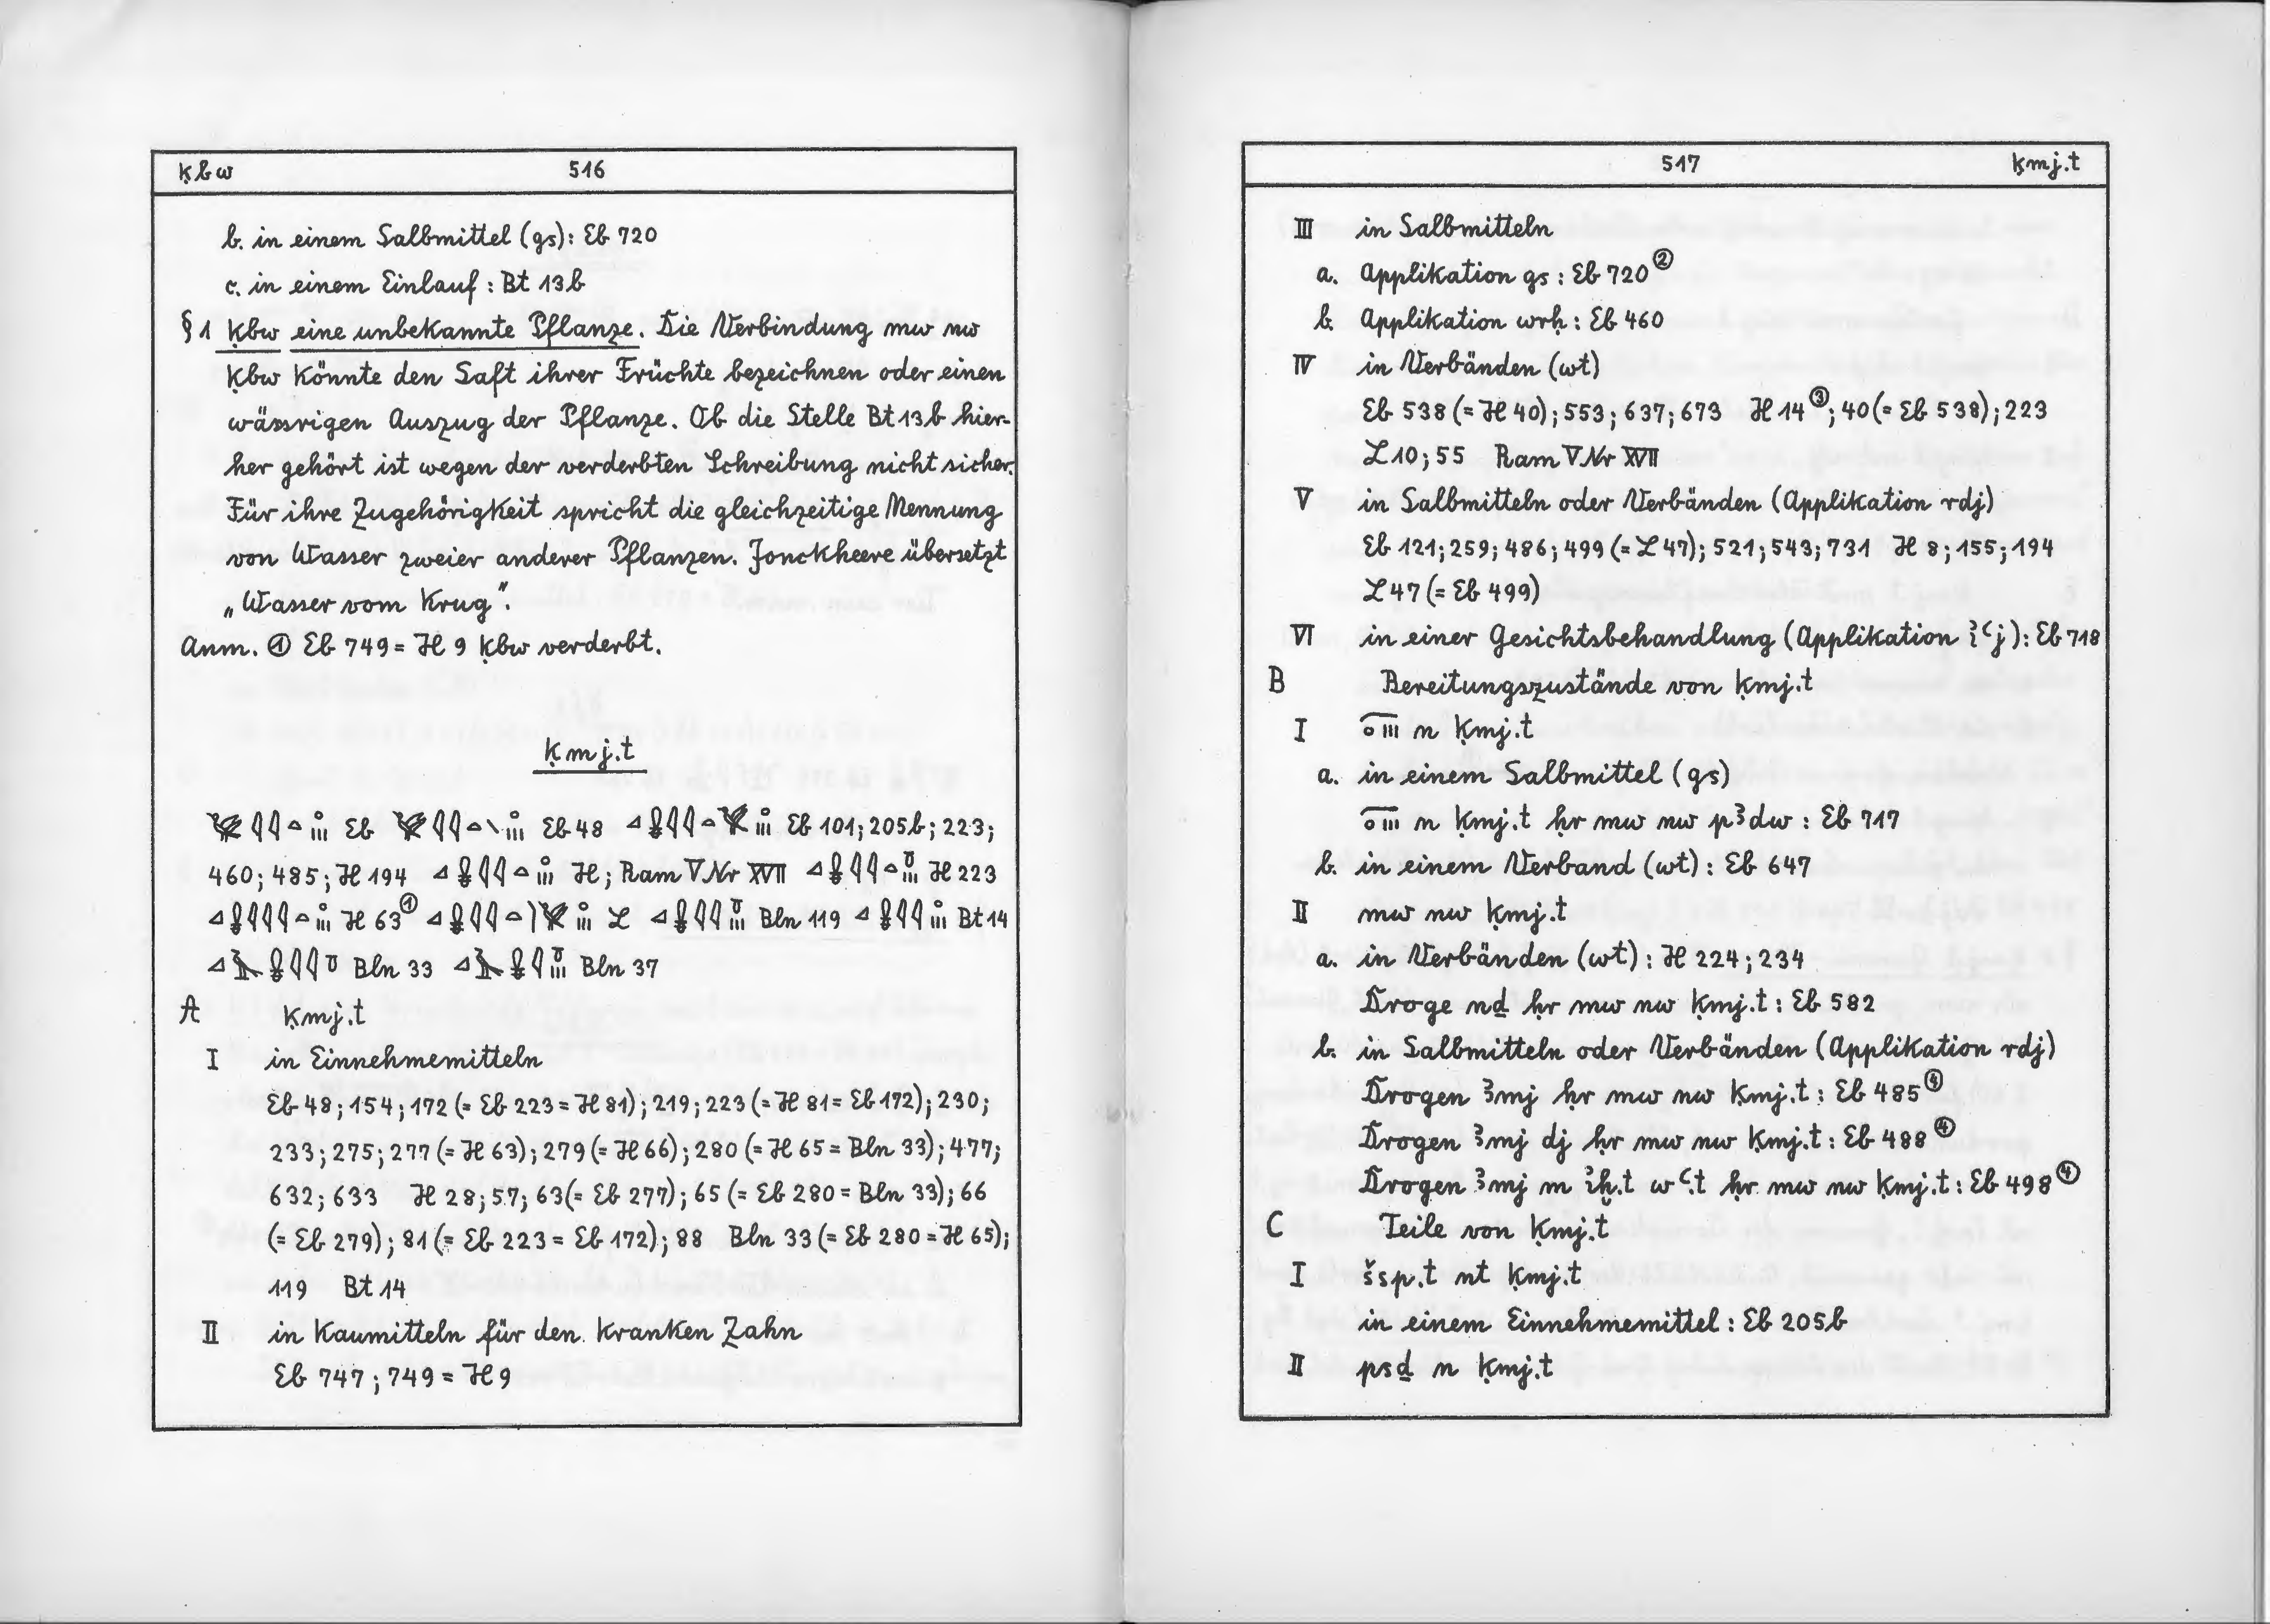 ḳbw 516
b. in einem Salbmittel (gs): Eb 720
c. in einem Einlauf : Bt 13b
§ 1 ḳbw eine unbekannte Pflanze. Die Verbindung mw nw
ḳbw könnte den Saft ihrer Früchte bezeichnen oder einen
wässrigen Auszug der Pflanze. Ob die Stelle Bt 13b hier-
her gehört ist wegen der verderbten Schreibung nicht sicher.
Für ihre Zugehörigkeit spricht die gleichzeitige Mennung
von Wasser zweier anderer Pflanzen. Jonckheere übersetzt
„Wasser vom Krug".
Anm. ① Eb 749 = H 9 ḳbw verderbt.
ḳmj.t
Eb Eb 48 Eb 101; 205b; 223;
460; 485; H 194 H; Ram V Nr XVII H 223
H 63 ① L Bln 119 Bt 14
Bln 33 Bln 37
A ḳmj.t
I in Einnehmemitteln
Eb 48; 154; 172 (= Eb 223 = H 81); 219; 223 (= H 81 = Eb 172); 230;
233; 275; 277 (= H 63); 279 (= H 66); 280 (= H 65 = Bln 33); 477;
632; 633 H 28; 57; 63 (= Eb 277); 65 (= Eb 280 = Bln 33); 66
(= Eb 279); 81 (= Eb 223 = Eb 172); 88 Bln 33 (= Eb 280 = H 65);
119 Bt 14
II in Kaumitteln für den kranken Zahn
Eb 747; 749 = H 9
517 ḳmj.t
III in Salbmitteln
a. Applikation gs : Eb 720 ②
b. Applikation wrḥ : Eb 460
IV in Verbänden (wt)
Eb 538 (= H 40); 553; 637; 673 H 14 ③; 40 (= Eb 538); 223
L 10; 55 Ram V Nr XVII
V in Salbmitteln oder Verbänden (Applikation rdj)
Eb 121; 259; 486; 499 (= L 47); 521; 543; 731 H 8; 155; 194
L 47 (= Eb 499)
VI in einer Gesichtsbehandlung (Applikation i҆ꜥj): Eb 718
B Bereitungszustände von ḳmj.t
I n ḳmj.t
a. in einem Salbmittel (gs)
n ḳmj.t ḥr mw nw pꜣdw : Eb 717
b. in einem Verband (wt) : Eb 647
II mw nw ḳmj.t
a. in Verbänden (wt) : H 224; 234
Droge nḏ ḥr mw nw ḳmj.t : Eb 582
b. in Salbmitteln oder Verbänden (Applikation rdj)
Drogen ꜣmj ḥr mw nw ḳmj.t : Eb 485 ④
Drogen ꜣmj dj ḥr mw nw ḳmj.t : Eb 488 ④
Drogen ꜣmj m i҆ḫ.t wꜥ.t ḥr mw nw ḳmj.t : Eb 498 ④
C Teile von ḳmj.t
I šsp.t nt ḳmj.t
in einem Einnehmemittel : Eb 205b
II psḏ n ḳmj.t